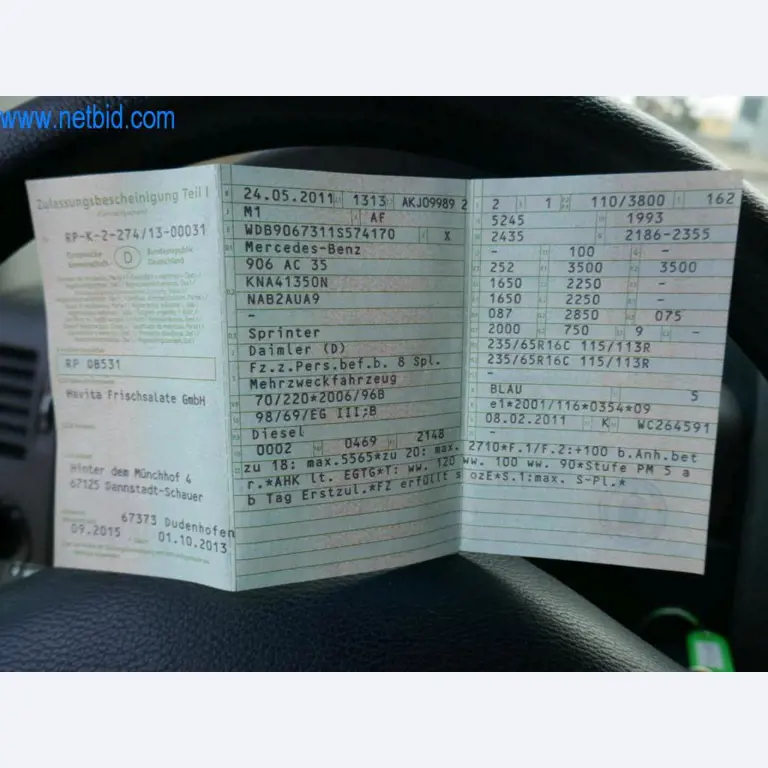 www.netbid.com
Zulassungsbescheinigung Teil I
RP-K-2-274/13-00031
Europäische Gemeinschaft D Bundesrepublik Deutschland
RP 08531
Havita Frischsalate GmbH
Hinter dem Münchhof 4
67125 Dannstadt-Schauer
67373 Dudenhofen
09.2015
01.10.2013
24.05.2011 1313 AKJ09989 2
M1 AF
WDB9067311S574170 X
Mercedes-Benz
906 AC 35
KNA41350N
NAB2AUA9
-
Sprinter
Daimler (D)
Fz.z.Pers.bef.b. 8 Spl.
Mehrzweckfahrzeug
70/220*2006/96B
98/69/EG III;B
Diesel
0002 0469 2148
2 1 110/3800 162
5245 1993
2435 2186-2355
- 100 -
252 3500 3500
1650 2250 -
1650 2250 -
087 2850 075
2000 750 9 -
235/65R16C 115/113R
235/65R16C 115/113R
-
BLAU 5
e1*2001/116*0354*09
08.02.2011 K WC264591
-
zu 18: max.5565*zu 20: max. 2710*F.1/F.2:+100 b.Anh.bet
r.*AHK lt. EGTG*T: ww. 120 ww. 100 ww. 90*Stufe PM 5 a
b Tag Erstzul.*FZ erfüllt sozE*S.1:max. S-Pl.*